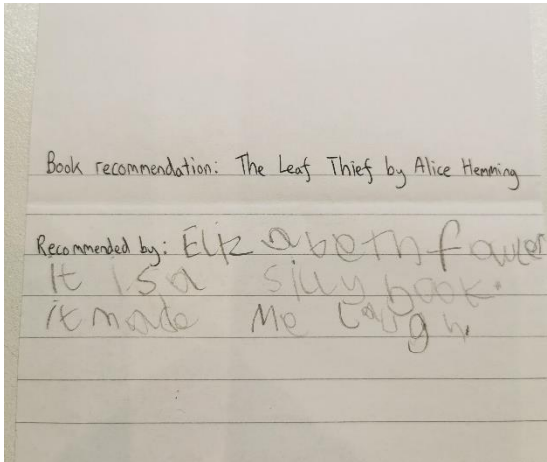 Book recommendation: The Leaf Thief by Alice Hemming
Recommended by: Elizabeth fowler
It is a silly book.
it made Me Laugh.